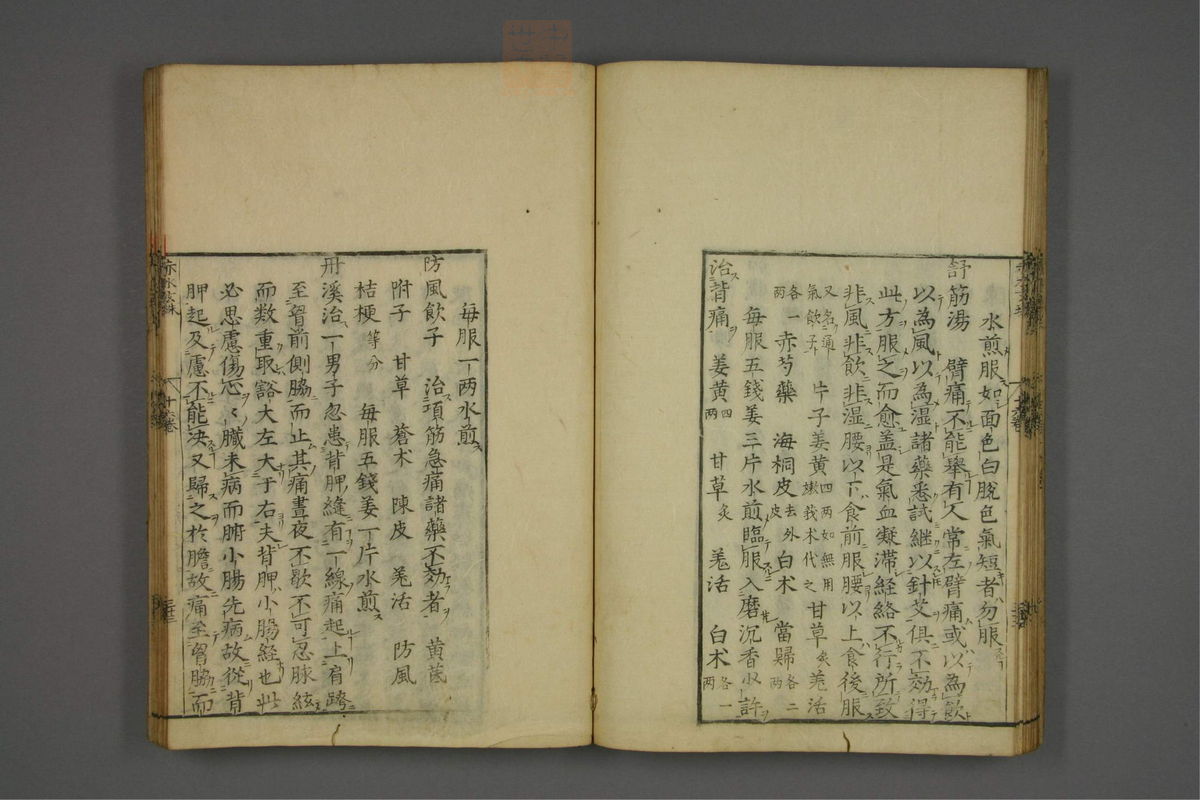 水煎服如面色白脱色氣短者勿服
舒筋湯 臂痛不能舉有人常左臂痛或以為飲
以為風以為湿諸藥悉試継以針艾俱不効得
此方服之而愈盖是氣血凝滞経絡不行所致
非風非飲非湿腰以下食前服腰以上食後服
又名通氣飲子 片子姜黄四两如無用嫩莪术代之 甘草炙 羗活
各一两 赤芍藥 海桐皮去外皮 白术 當歸各二两
每服五錢姜三片水煎臨服入磨沉香少許
治背痛 姜黄四两 甘草炙 羗活 白术各一两
每服一两水煎
防風飲子 治項筋急痛諸藥不効者 黄芪
附子 甘草 蒼术 陳皮 羗活 防風
桔梗等分 每服五錢姜一片水煎
丹溪治一男子忽患背胛縫有一線痛起上肩跨
至胷前側脇而止其痛晝夜不歇不可忍脉絃
而数重取豁大左大于右夫背胛小腸経也此
必思慮傷心〻臓未病而腑小腸先病故從背
胛起及慮不能决又歸之於膽故痛至胷脇而
赤水玄珠
十卷